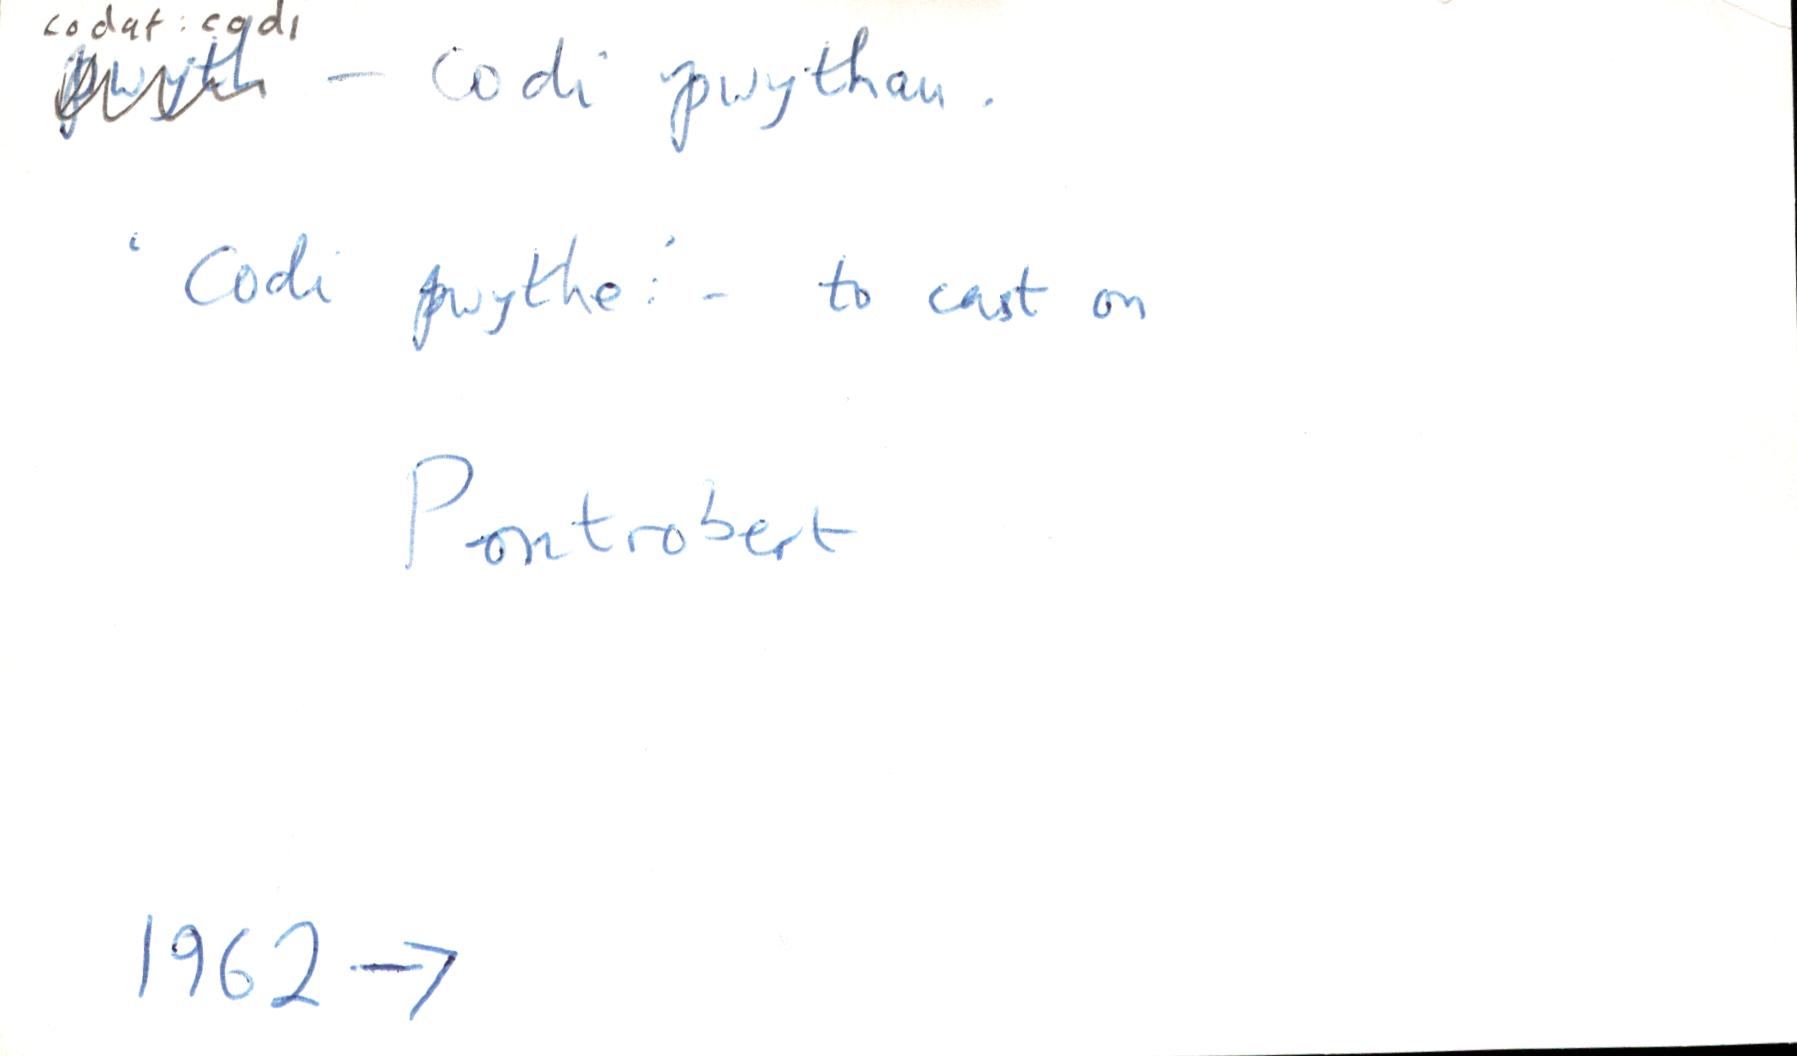 codaf: codi
pwyth – Codi pwythau.
'Codi pwythe:' - to cast on
Pontrobert
1962 →